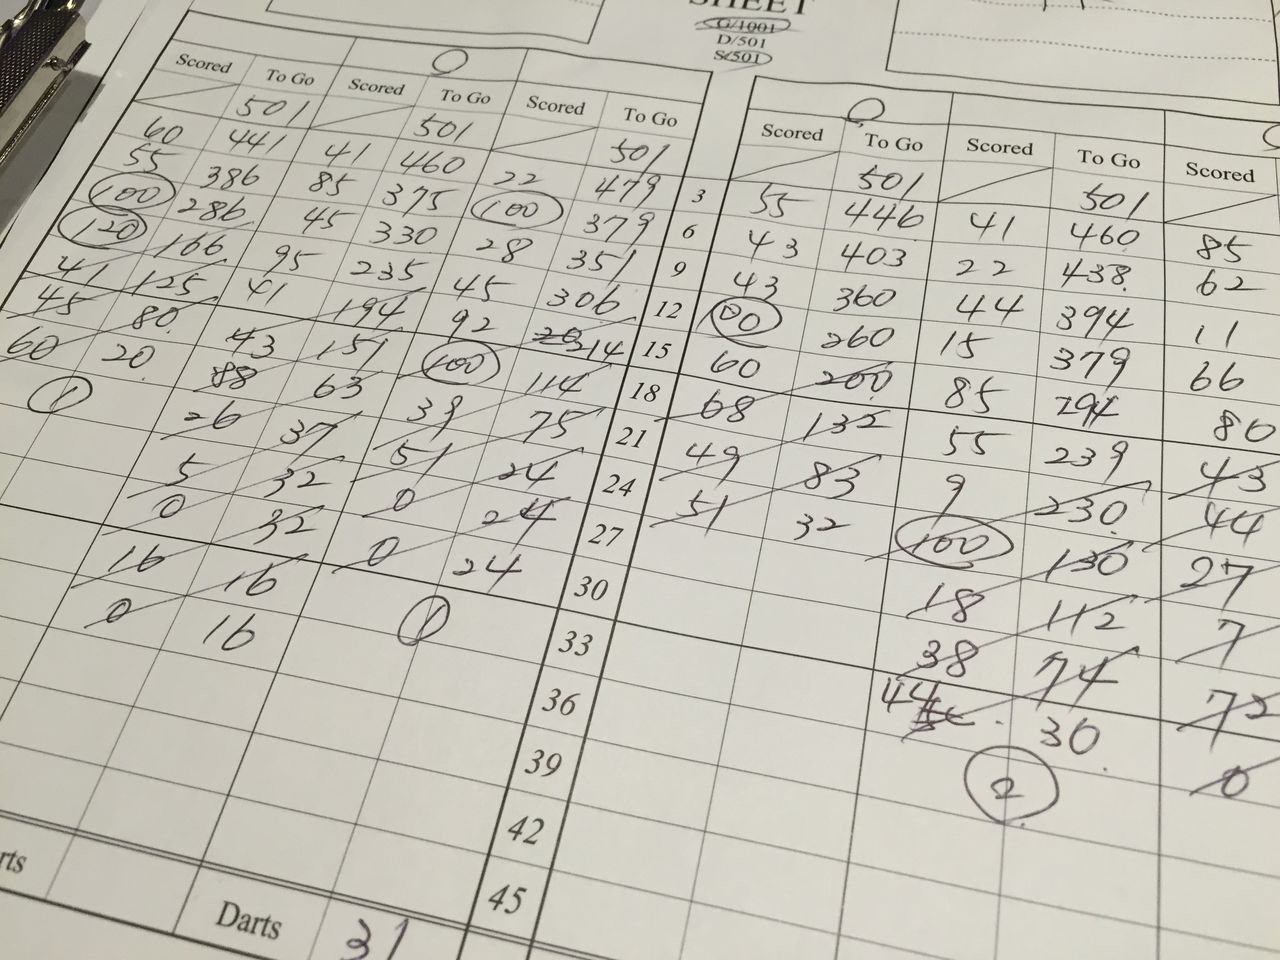 SHEET
G/1001
D/501
S/501
Scored To Go Scored To Go Scored To Go Scored To Go Scored To Go Scored
501 501 501 501 501
60 441 41 460 22 479 3 55 446 41 460 85
55 386 85 375 100 379 6 43 403 22 438 62
100 286 45 330 28 351 9 43 360 44 394 11
120 166 95 235 45 306 12 100 260 15 379 66
41 125 41 194 92 214 15 60 200 85 294 80
45 80 43 151 100 114 18 68 132 55 239 43
60 20 88 63 39 75 21 49 83 9 230 44
1 26 37 51 24 24 51 32 100 130 27
5 32 0 24 27 18 112 7
0 32 0 24 30 38 74 72
16 16 1 33 44 30 0
0 16 36 2
39
42
45
rts Darts 31